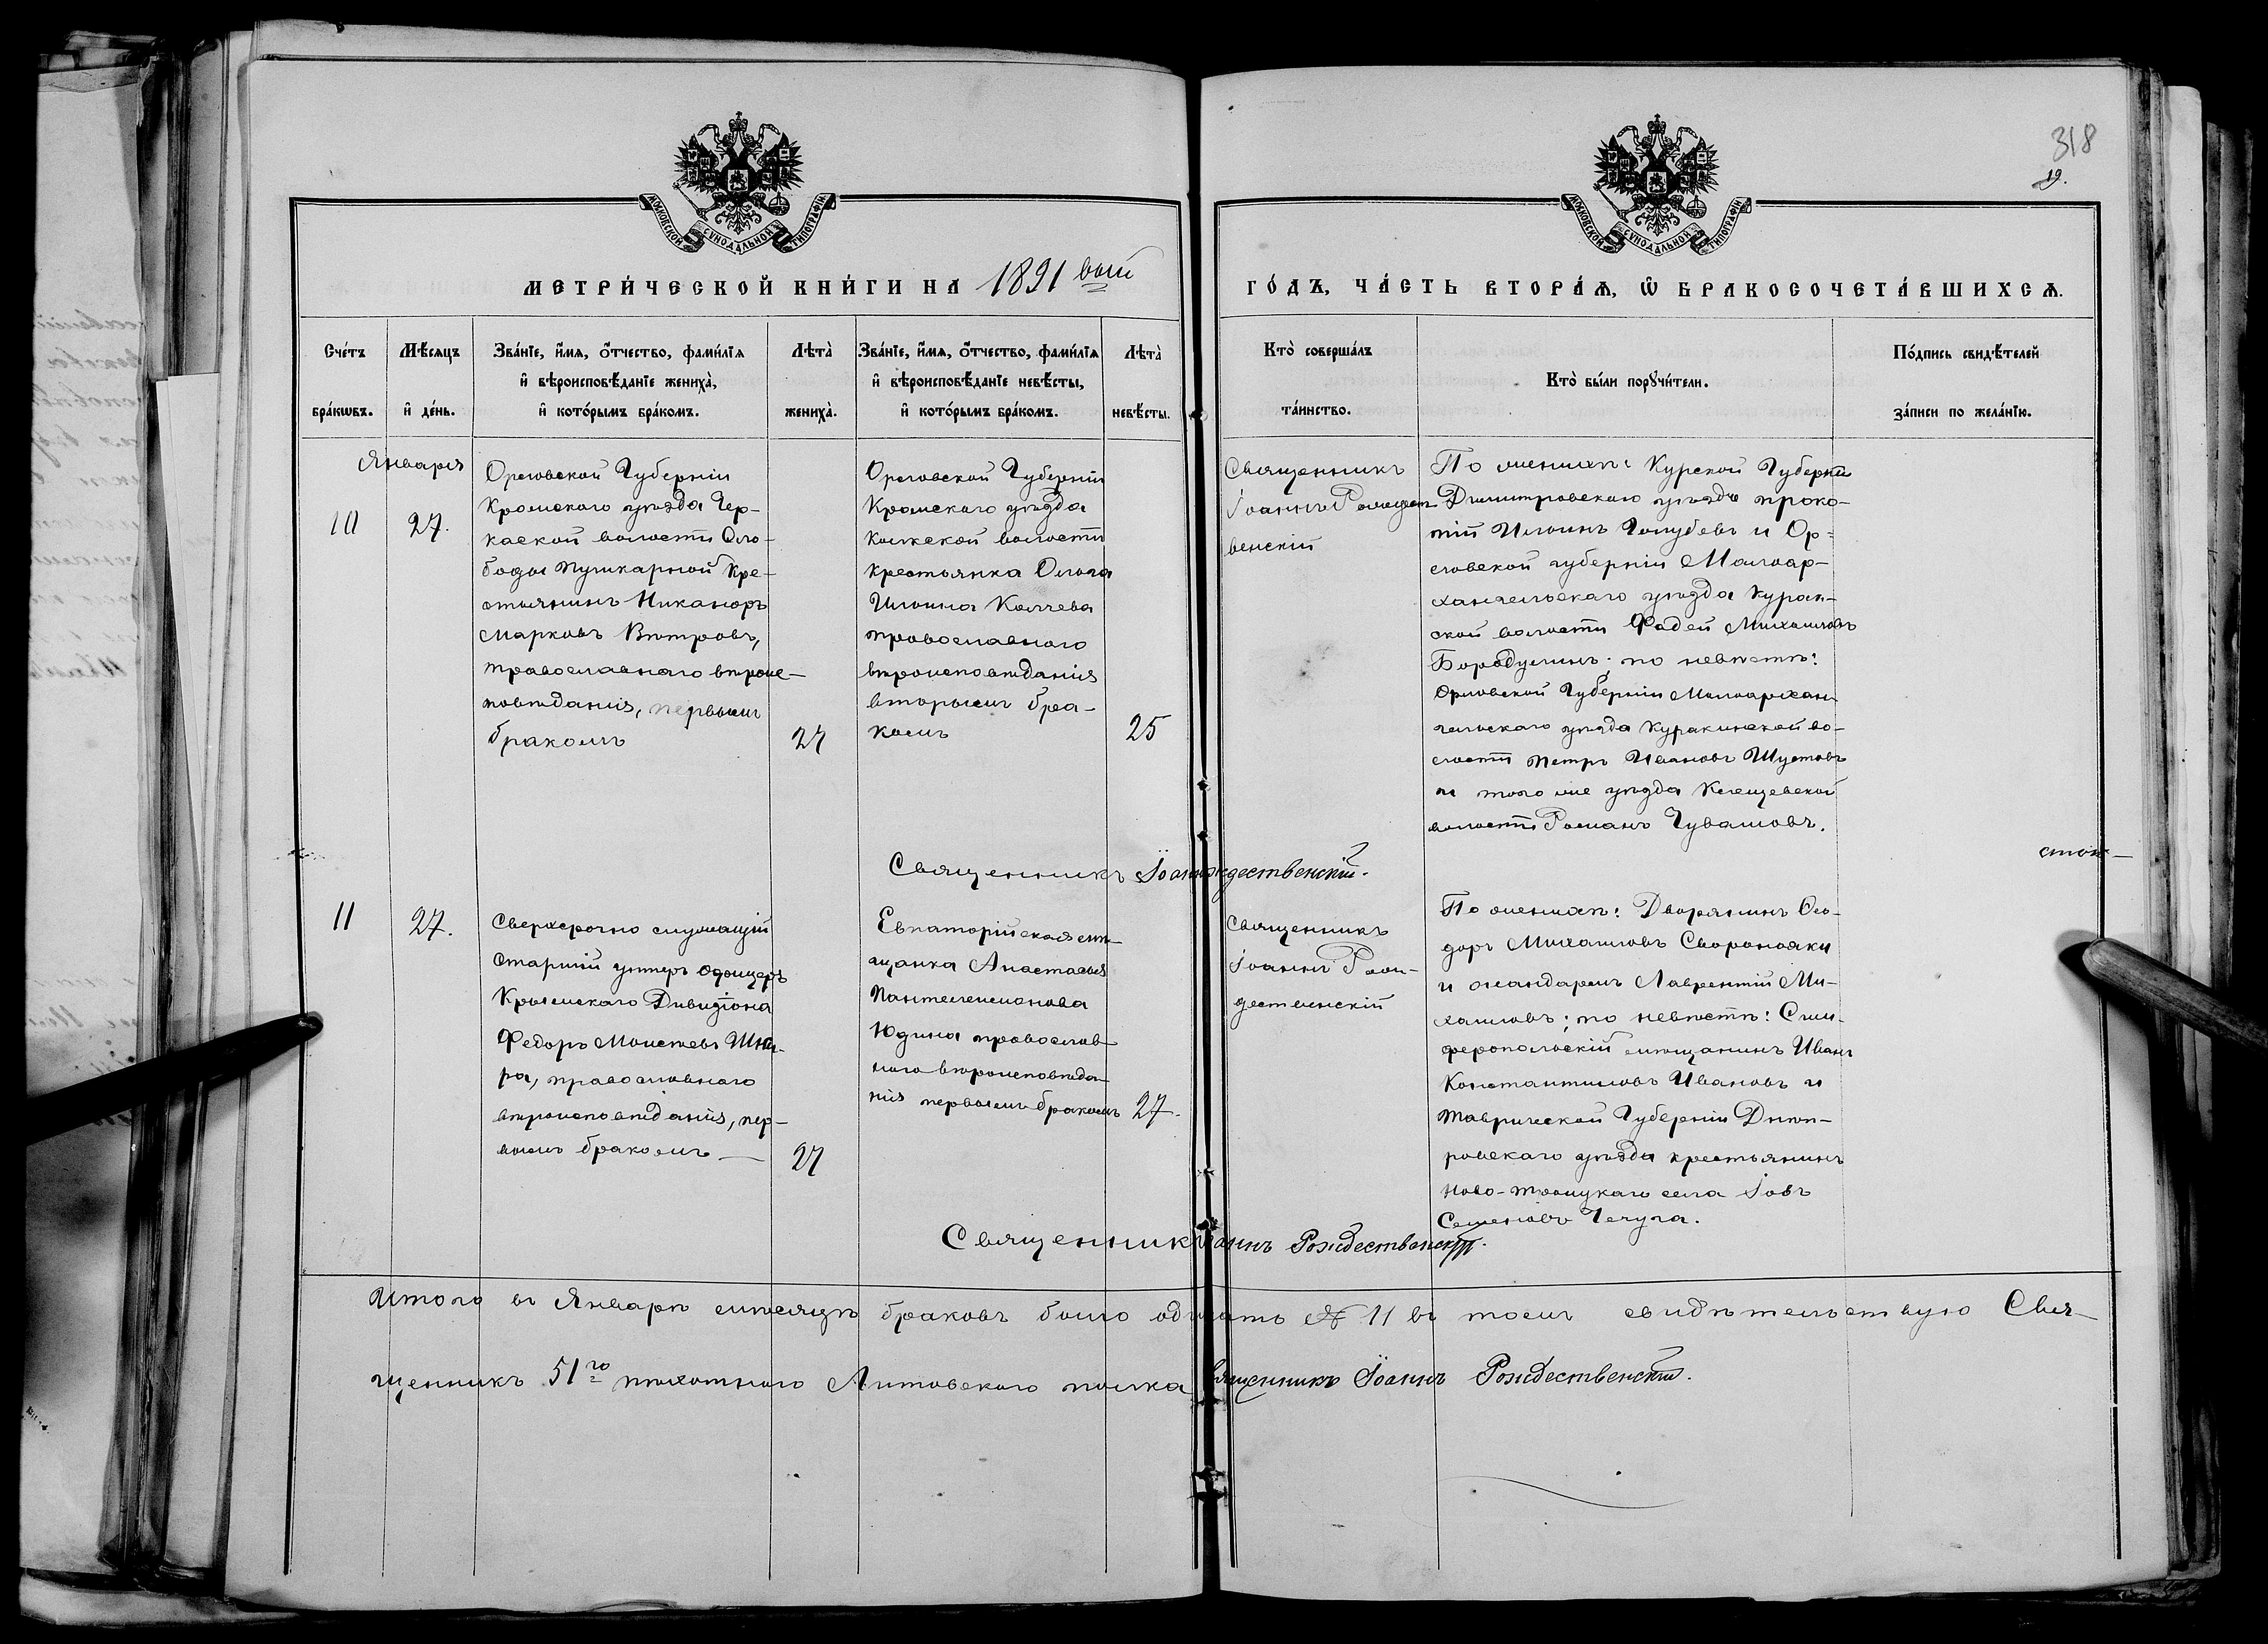 318
19.
МОСКОВСКОЙ СѴНОДАЛЬНОЙ ТИПОГРАФІИ
МОСКОВСКОЙ СѴНОДАЛЬНОЙ ТИПОГРАФІИ
МЕТРИ́ЧЕСКОЙ КНИ́ГИ НА 1891 вый
ГО́ДЪ, ЧА́СТЬ ВТОРА́Ѧ, Ѡ҆ БРАКОСОЧЕТА́ВШИХСѦ.
Сче́тъ
бра́кѡвъ.
Мѣ́сяцъ
и҆ де́нь.
Зва́нїе, и҆́мя, ѻ҆́тчество, фами́лїя
и҆ вѣроисповѣ́данїе жениха̀,
и҆ кото́рымъ бра́комъ.
Лѣта̀
жениха̀.
Зва́нїе, и҆́мя, ѻ҆́тчество, фами́лїя
и҆ вѣроисповѣ́данїе невѣ́сты,
и҆ кото́рымъ бра́комъ.
Лѣта̀
невѣ́сты.
Кто̀ соверша́лъ
та́инство.
Кто̀ бы́ли порꙋчи́тели.
По́дпись свидѣ́телей
за́писи по жела́нїю.
Января
10
27.
Орловской Губерніи
Кромскаго уѣзда Чер-
каской волости Сло-
боды Пушкарной Кре-
стьянинъ Никаноръ
Марковъ Вѣтровъ,
православнаго вѣроис-
повѣданія, первымъ
бракомъ
27
Орловской Губерніи
Кромскаго уѣзда
волости
крестьянка Ольга
Ильина
православнаго
вѣроисповѣданія
вторымъ бра-
комъ
25
Священникъ
Іоаннъ Рождест-
венскій
По женихѣ: Курской Губерніи
Димитровскаго уѣзда Проко-
пій Ильинъ Голубевъ и Ор-
ловской губерніи Малоар-
хангельскаго уѣзда Куракин-
ской волости Фадей Михайловъ
Бородулинъ; по невѣстѣ:
Орловской Губерніи Малоархан-
гельскаго уѣзда Куракинской во-
лости Петръ Ивановъ Шустовъ
и того же уѣзда
волости Романъ Чувашовъ.
Священникъ Іоаннъ Рождественскій.
11
27.
Сверхсрочно служащій
старшій унтеръ офицеръ
Крымскаго Дивизіона
Федоръ Моисѣевъ
православнаго
вѣроисповѣданія, пер-
вымъ бракомъ
27
Евпаторійская мѣ-
щанка Анастасія
Пантелеимонова
Юдина православ-
наго вѣроисповѣда-
нія первымъ бракомъ
27.
Священникъ
Іоаннъ Рож-
дественскій
По женихѣ: Дворянинъ Ѳео-
доръ Михайловъ
и жандармъ Лаврентій Ми-
хайловъ; по невѣстѣ: Сим-
феропольскій мѣщанинъ Иванъ
Константиновъ Ивановъ и
Таврической Губерніи Днѣп-
ровскаго уѣзда крестьянинъ
Ново-Троицкаго села Іовъ
Семеновъ Чечуга.
Священникъ Іоаннъ Рождественскій.
Итого въ Январѣ мѣсяцѣ браковъ было одинать № 11 въ томъ свидѣтельствую Свя-
щенникъ 51го пѣхотнаго Литовскаго полка Священникъ Іоаннъ Рождественскій.